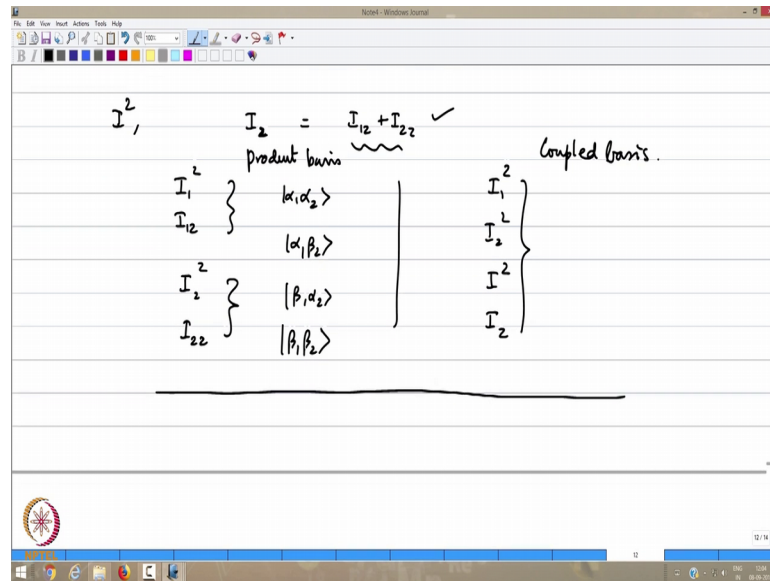 Note4 - Windows Journal
File Edit View Insert Actions Tools Help
100%
B I
I², I_z = I_1z + I_2z ✓
product basis
Coupled basis.
I_1² } |α_1 α_2⟩ I_1²
I_1z |α_1 β_2⟩ I_2²
I_2² } |β_1 α_2⟩ I²
I_2z |β_1 β_2⟩ I_z
12 / 14
NPTEL
12
ENG 12:04
IN